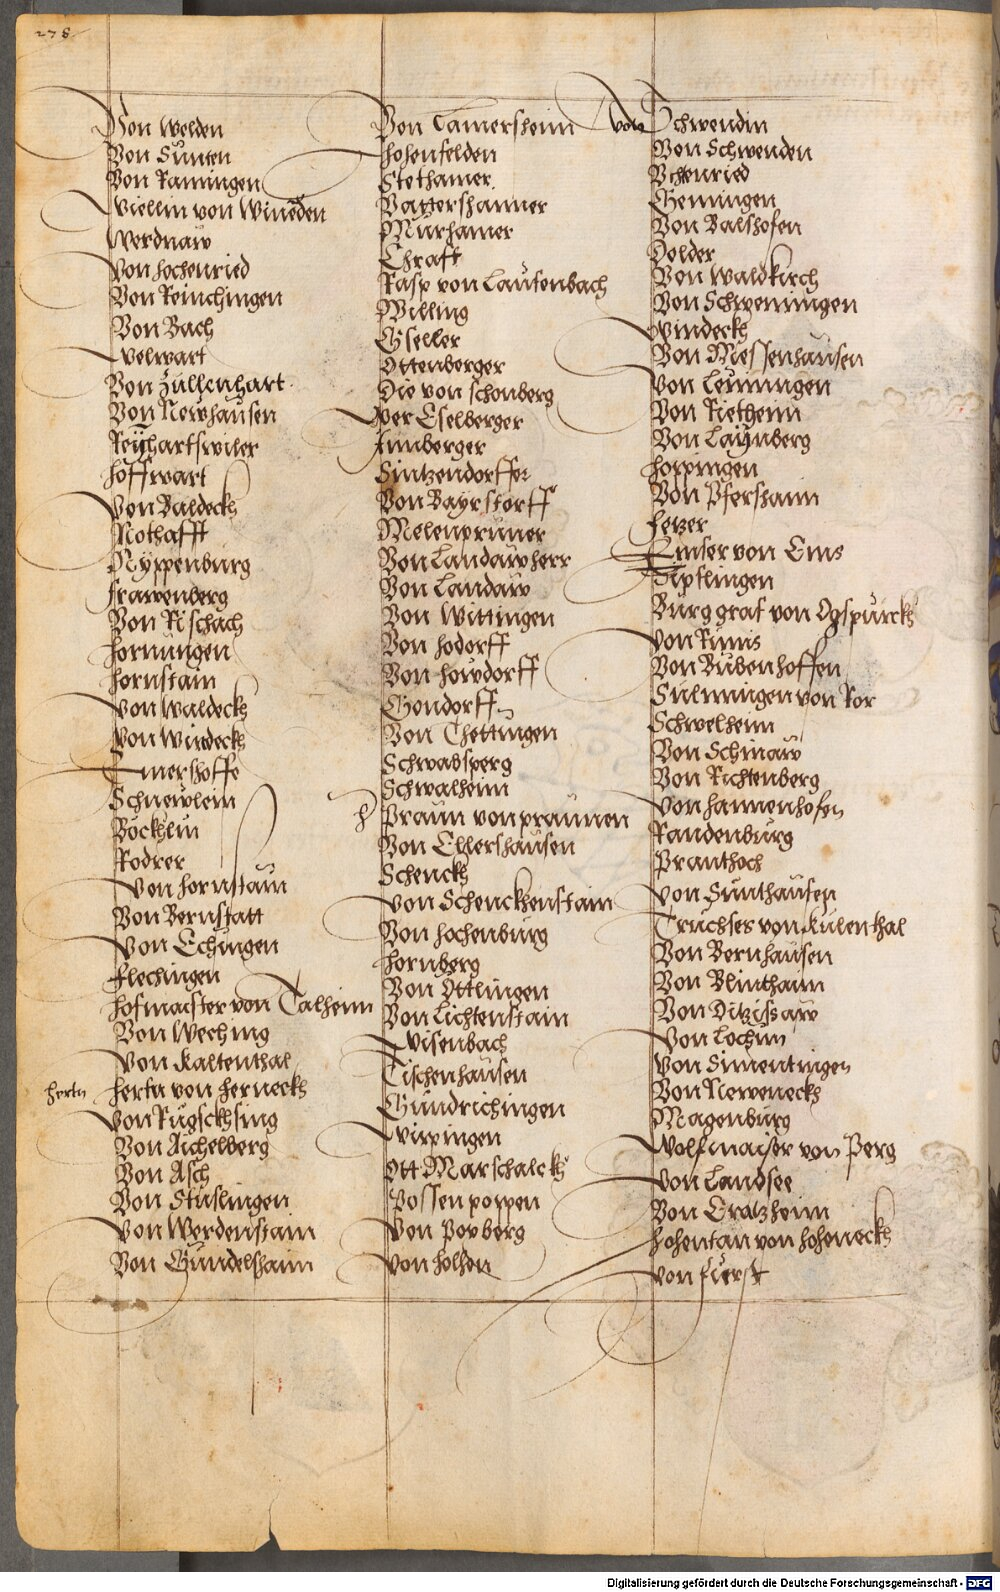 278
Von Welden
Von Sunten
Von Ramingen
Viellin von Wineden
Werdnaw
Von hochenried
Von Reinchingen
Von Bach
Velwart
Von Zullenhart
Von Newhausen
Reyhartswiler
Hoffwart
Von Baldeckh
Nothafft
Nyppenburg
Frawenberg
Von Rischach
Hornungen
Hornstain
Von Waldeckh
Von Windeckh
Emershoffe
Schnewlein
Böckhlin
Rodrer
Von Hornstain
Von Bernstatt
Von Echingen
Flechingen
Hofmaister von Talheim
Von Weching
Von Kaltenthal
hertn Hertn von Herneckh
Von Rugsckhsing
Von Aichelberg
Von Asch
Von Stuslingen
Von Werdenstain
Von Gundelshaim
Von Tamersheim
Hohenfelden
Stethamer
Vattershanner
Murhamer
Chraft
Rasp von Laufenbach
Willing
Gseller
Ottenberger
Die von schonberg
Per Eselberger
Innberger
Sintzendorffer
Von Bayrstorff
Melenpruner
Von Landaw herr
Von Landaw
Von Wittingen
Von Hodorff
Von Howdorff
Gondorff
Von Thettingen
Schwabsperg
Schwalheim
P Praun von praunen
Von Ellershausen
Schenckh
Von Schenckhenstain
Von Hochenburg
Hornberg
Von Ottlingen
Von Lichtenstain
Wisenbach
Tischenhausen
Gundrichingen
Wirpingen
Ott Marschalckh
Possen poppen
Von Poxberg
Von Holhen
von Schwendin
Von Schwenden
Vchtenried
Gemingen
Von Balshofen
Dolder
Von Waldkirch
Von Schwenningen
Windeckh
Von Messenhausen
Von Leiningen
Von Riethenn
Von Laynberg
Hoppingen
Von Pfershaim
Fetzer
Emser von Ems
Tiptlingen
Burggraf von Ogspurckh
Von Rumis
Von Bubenhoffen
Sulmingen von Ror
Schwelheim
Von Schinaw
Von Richtenberg
Von Hannenhofen
Randenburg
Pranthoch
Von Sunthausen
Truchses von Kulenthal
Von Bernhausen
Von Blinthaim
Von Ditzissaw
Von Lochin
Von Simentingen
Von Neweneckh
Magenburg
Wolfmaiser von Perg
Von Landsee
Von Cratzheim
Hohentan von Hoheneckh
Von Fierst
Digitalisierung gefördert durch die Deutsche Forschungsgemeinschaft - DFG